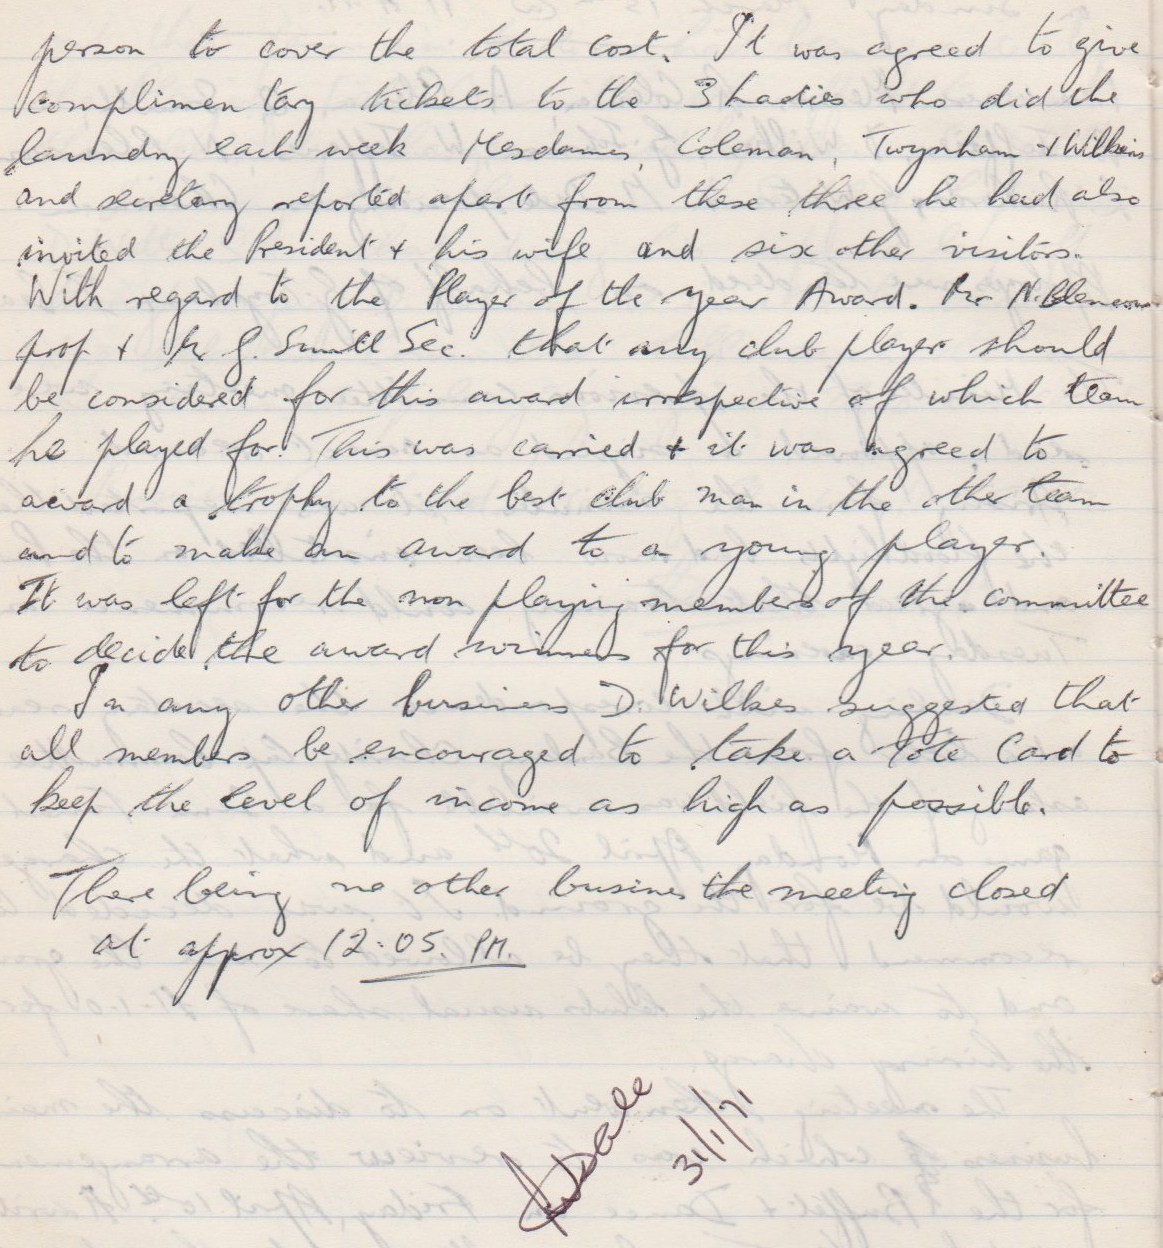 person to cover the total cost. It was agreed to give
complimentary tickets to the 3 Ladies who did the
laundry each week Mesdames, Coleman, Twynham + Wilkins
and secretary reported apart from these three he had also
invited the President + his wife and six other visitors.
With regard to the Player of the year Award. Mr N.
prop + Mr G. Smith Sec. that any club player should
be considered for this award irrespective of which team
he played for. This was carried + it was agreed to
award a trophy to the best club man in the other team
and to make an award to a young player.
It was left for the non playing members of the committee
to decide the award winners for this year.
In any other business D. Wilkes suggested that
all members be encouraged to take a Tote Card to
keep the level of income as high as possible.
There being no other busines the meeting closed
at approx 12.05. PM.
Dale
31/1/71